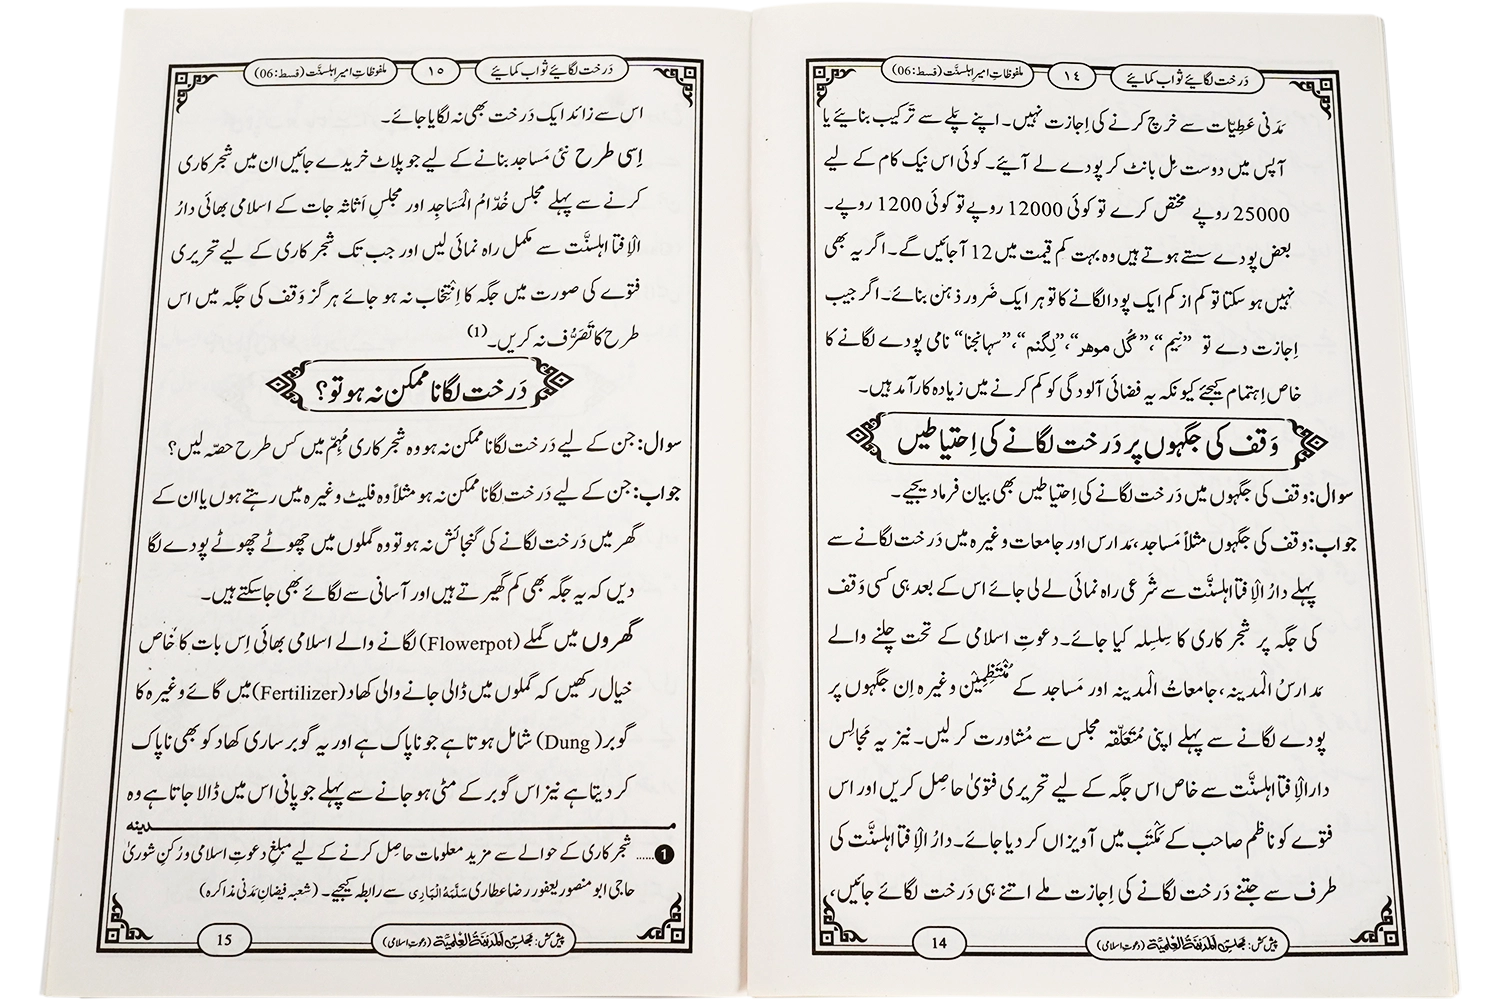 دَرخت لگائیے ثواب کمائیے ١٤ ملفوظاتِ امیرِ اہلسنّت (قسط:06)
مَدَنی عَطِیّات سے خرچ کرنے کی اِجازت نہیں۔ اپنے پلے سے تَرکیب بنائیے یا
آپس میں دوست مِل بانٹ کر پودے لے آئیے۔ کوئی اس نیک کام کے لیے
25000 روپے مختص کرے تو کوئی 12000 روپے تو کوئی 1200 روپے۔
بعض پودے سستے ہوتے ہیں وہ بہت کم قیمت میں 12 آجائیں گے۔ اگر یہ بھی
نہیں ہوسکتا تو کم از کم ایک پودا لگانے کا تو ہر ایک ضَرور ذہن بنائے۔ اگر جیب
اِجازت دے تو ”نِیم“،”گُل موھر“،”لِگنم“،”سہانجنا“ نامی پودے لگانے کا
خاص اِہتمام کیجئے کیونکہ یہ فضائی آلودگی کو کم کرنے میں زیادہ کارآمد ہیں۔
وَقف کی جگہوں پر دَرخت لگانے کی اِحتیاطیں
سوال: وقف کی جگہوں میں دَرخت لگانے کی اِحتیاطیں بھی بیان فرما دیجیے۔
جواب: وقف کی جگہوں مثلاً مَساجد، مَدارس اور جامعات وغیرہ میں دَرخت لگانے سے
پہلے دارُ الاِفتا اہلسنَّت سے شَرعی راہ نمائی لے لی جائے اس کے بعد ہی کسی وَقف
کی جگہ پر شجر کاری کا سِلسِلہ کیا جائے۔ دعوتِ اسلامی کے تحت چلنے والے
مَدارِسُ الْمدینہ، جامعاتُ الْمدینہ اور مَساجد کے مُنْتَظِمِیْن وغیرہ اِن جگہوں پر
پودے لگانے سے پہلے اپنی مُتَعَلِّقہ مجلس سے مُشاورت کر لیں۔ نیز یہ مَجالِس
دارالاِفتا اہلسنَّت سے خاص اس جگہ کے لیے تحریری فتویٰ حاصِل کریں اور اس
فتوے کو ناظم صاحب کے مَکْتَب میں آویزاں کر دیا جائے۔ دارُ الاِفتا اہلسنَّت کی
طرف سے جتنے دَرخت لگانے کی اِجازت ملے اتنے ہی دَرخت لگائے جائیں،
پیش کش: مجلس اَلْمَدِیْنَۃُ الْعِلْمِیَّۃ (دعوتِ اسلامی) 14
دَرخت لگائیے ثواب کمائیے ١٥ ملفوظاتِ امیرِ اہلسنّت (قسط:06)
اس سے زائد ایک دَرخت بھی نہ لگایا جائے۔
اِسی طرح نئی مَساجد بنانے کے لیے جو پلاٹ خریدے جائیں ان میں شجر کاری
کرنے سے پہلے مجلس خُدّامُ الْمَسَاجِد اور مجلسِ اَثاثہ جات کے اسلامی بھائی دارُ
الاِفتا اہلسنَّت سے مکمل راہ نمائی لیں اور جب تک شجر کاری کے لیے تحریری
فتوے کی صورت میں جگہ کا اِنْتِخاب نہ ہو جائے ہرگز وَقف کی جگہ میں اس
طرح کا تَصَرُّف نہ کریں۔(1)
دَرخت لگانا ممکن نہ ہو تو؟
سوال: جن کے لیے دَرخت لگانا ممکن نہ ہو وہ شجر کاری مُہِمّ میں کس طرح حصّہ لیں؟
جواب: جن کے لیے دَرخت لگانا ممکن نہ ہو مثلاً وہ فلیٹ وغیرہ میں رہتے ہوں یا ان کے
گھر میں دَرخت لگانے کی گنجائش نہ ہو تو وہ گملوں میں چھوٹے چھوٹے پودے لگا
دیں کہ یہ جگہ بھی کم گھیرتے ہیں اور آسانی سے لگائے بھی جا سکتے ہیں۔
گھروں میں گملے (Flowerpot) لگانے والے اسلامی بھائی اِس بات کا خاص
خیال رکھیں کہ گملوں میں ڈالی جانے والی کھاد (Fertilizer) میں گائے وغیرہ کا
گوبر( Dung) شامل ہوتا ہے جو ناپاک ہے اور یہ گوبر ساری کھاد کو بھی ناپاک
کر دیتا ہے نیز اس گوبر کے مٹی ہو جانے سے پہلے جو پانی اس میں ڈالا جاتا ہے وہ
مـــدینه
1 ...... شجر کاری کے حوالے سے مزید معلومات حاصِل کرنے کے لیے مبلغِ دعوتِ اسلامی و رُکنِ شوریٰ
حاجی ابو منصور یعفور رضا عطاری سَلَّمَهُ الْبَارِی سے رابطہ کیجیے۔ (شعبہ فیضانِ مَدَنی مذاکرہ)
پیش کش: مجلس اَلْمَدِیْنَۃُ الْعِلْمِیَّۃ (دعوتِ اسلامی) 15